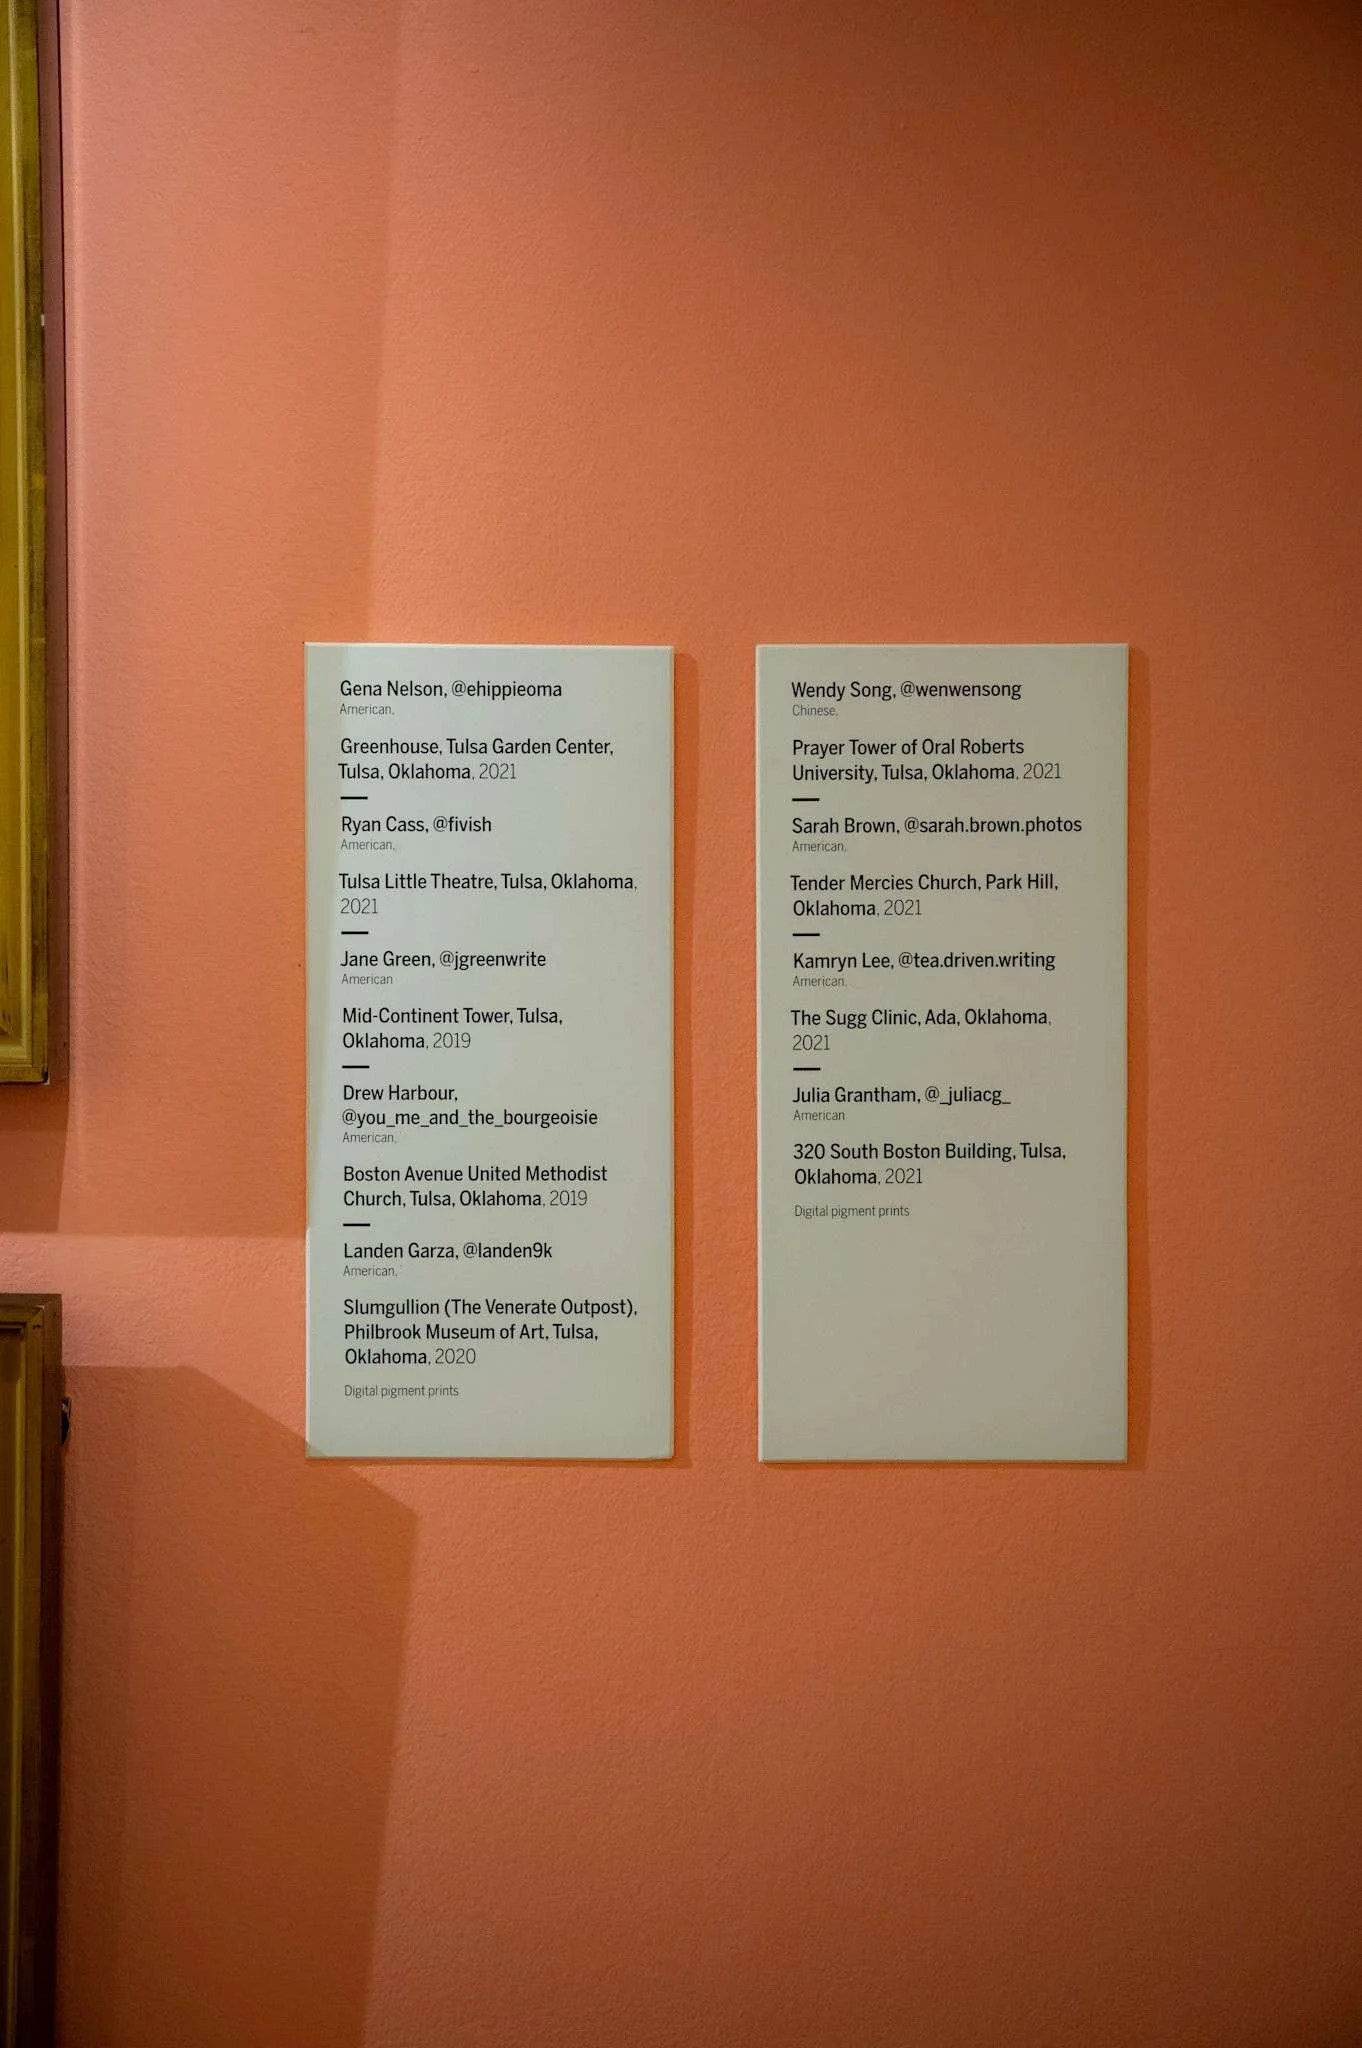 Gena Nelson, @ehippieoma
American,
Greenhouse, Tulsa Garden Center,
Tulsa, Oklahoma, 2021
Ryan Cass, @fivish
American,
Tulsa Little Theatre, Tulsa, Oklahoma,
2021
Jane Green, @jgreenwrite
American
Mid-Continent Tower, Tulsa,
Oklahoma, 2019
Drew Harbour,
@you_me_and_the_bourgeoisie
American,
Boston Avenue United Methodist
Church, Tulsa, Oklahoma, 2019
Landen Garza, @landen9k
American,
Slumgullion (The Venerate Outpost),
Philbrook Museum of Art, Tulsa,
Oklahoma, 2020
Digital pigment prints
Wendy Song, @wenwensong
Chinese,
Prayer Tower of Oral Roberts
University, Tulsa, Oklahoma, 2021
Sarah Brown, @sarah.brown.photos
American,
Tender Mercies Church, Park Hill,
Oklahoma, 2021
Kamryn Lee, @tea.driven.writing
American,
The Sugg Clinic, Ada, Oklahoma,
2021
Julia Grantham, @_juliacg_
American
320 South Boston Building, Tulsa,
Oklahoma, 2021
Digital pigment prints